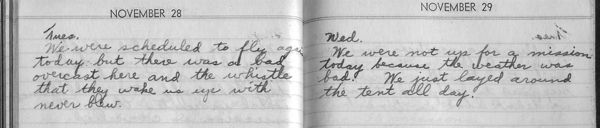 NOVEMBER 28
Tues.
We were scheduled to fly again
today but there was a bad
overcast here and the whistle
that they wake us up with
never blew.
NOVEMBER 29
Wed.
We were not up for a mission
today because the weather was
bad. We just layed around
the tent all day.